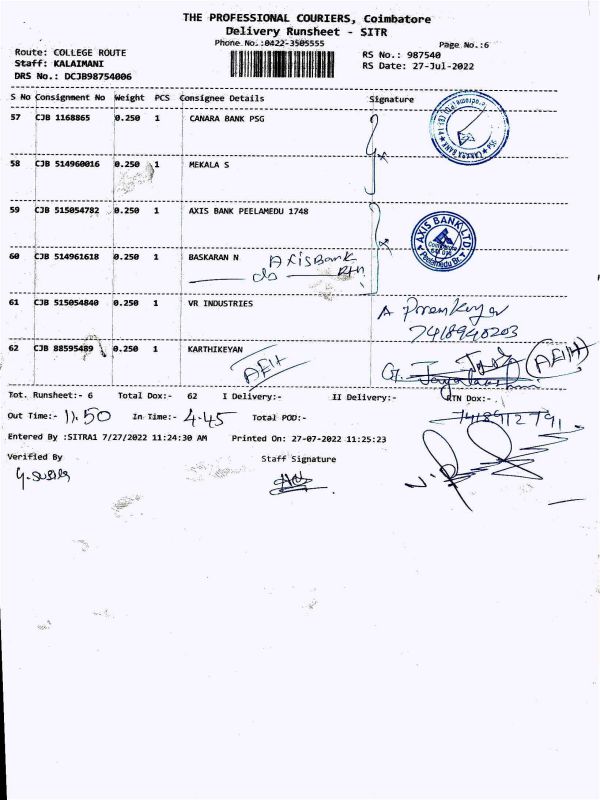 THE PROFESSIONAL COURIERS, Coimbatore
Delivery Runsheet - SITR
Phone No.:0422-3505555
Page No.:6
Route: COLLEGE ROUTE
RS No.: 987540
Staff: KALAIMANI
RS Date: 27-Jul-2022
DRS No.: DCJB98754006
S No Consignment No Weight PCS Consignee Details Signature
57 CJB 1168865 0.250 1 CANARA BANK PSG
58 CJB 514960016 0.250 1 MEKALA S
59 CJB 515054782 0.250 1 AXIS BANK PEELAMEDU 1748
AXIS BANK LTD.
Coimbatore
Peelamedu Br.
60 CJB 514961618 0.250 1 BASKARAN N Axis Bank
c/o
61 CJB 515054840 0.250 1 VR INDUSTRIES
7418940203
62 CJB 88595489 0.250 1 KARTHIKEYAN AEIH
AEIH
Tot. Runsheet:- 6 Total Dox:- 62 I Delivery:- II Delivery:- RTN Dox:-
Out Time:- 11.50 In Time:- 4.45 Total POD:-
7418912791
Entered By :SITRA1 7/27/2022 11:24:30 AM Printed On: 27-07-2022 11:25:23
Verified By Staff Signature